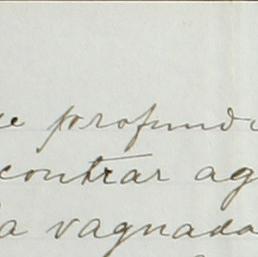 ue profundi
contrar ag
a vaguada